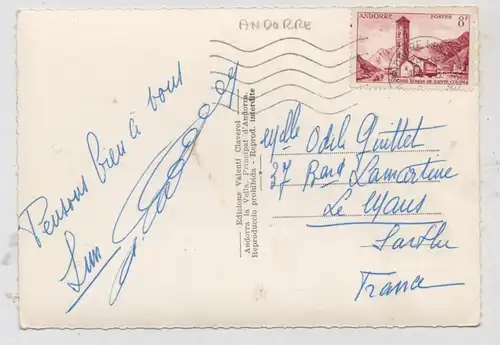 ANDORRE
ANDORRE POSTES 8F
CLOCHER ROMAN DE SAINTE-COLOMA
Pensons bien à vous
Edicions Valenti Claverol
Andorra la Vella, Principat d'Andorra
Reproduccio prohibida - Reprod. interdite
Mylle Odile Guittet
37 Bard Lamartine
Le Mans
Sarthe
France